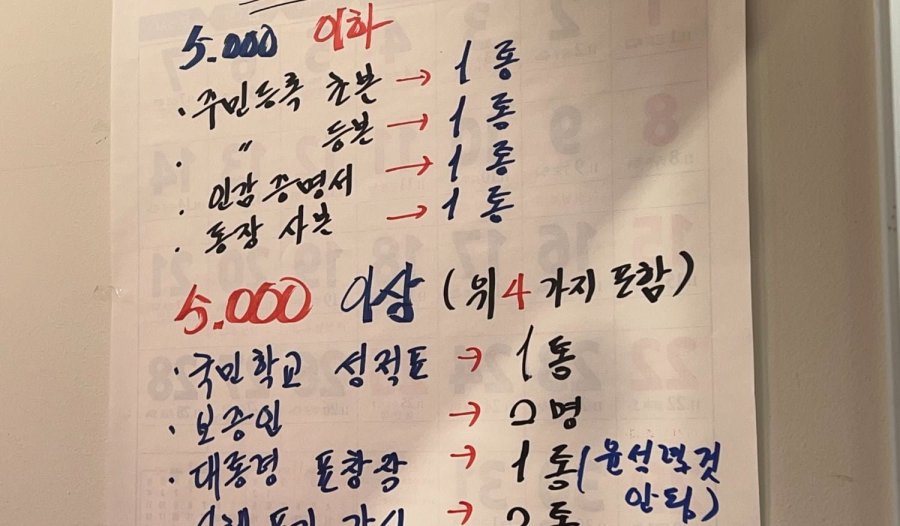 5.000 이하
· 주민등록 초본 → 1 통
· 〃 등본 → 1 통
· 인감증명서 → 1 통
· 통장 사본 → 1 통
5.000 이상 (위 4가지 포함)
· 국민학교 성적표 → 1 통
· 보증인 → 2 명
· 대통령 표창장 → 1 통 (윤석렬것 안됨)
→ 2 통